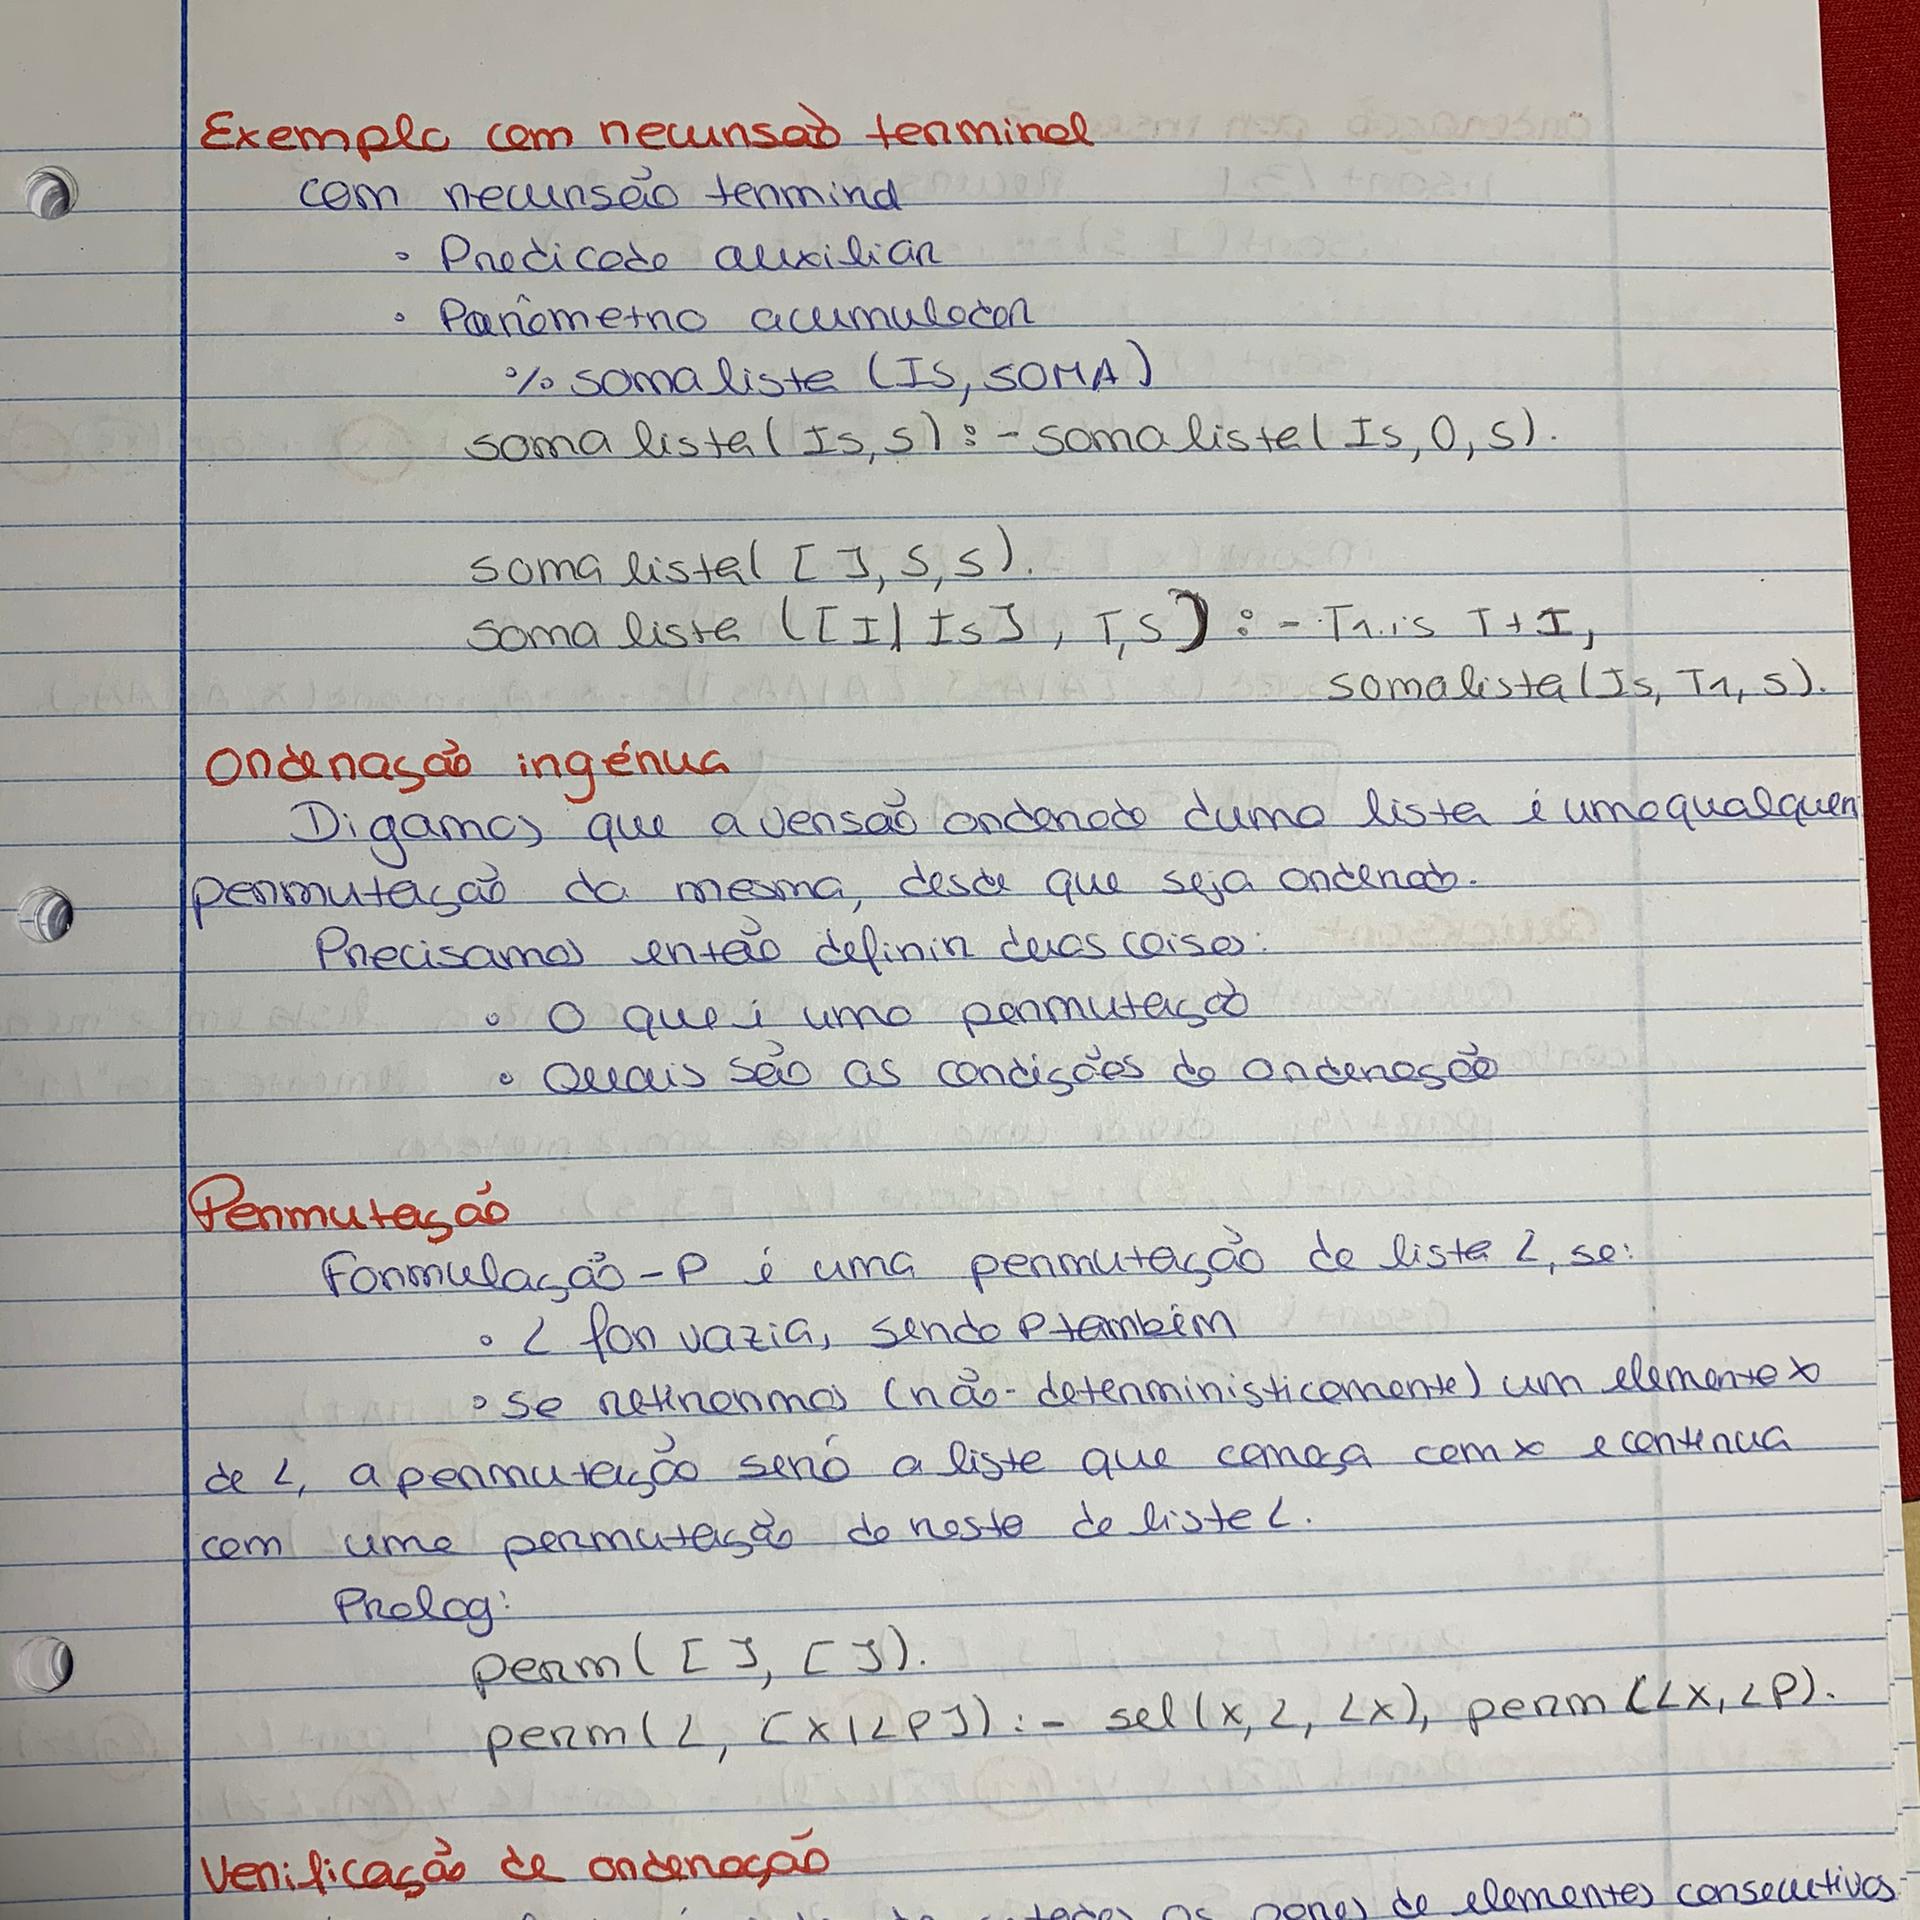 Exemplo com recursão terminal
com recursão terminal
• Predicado auxiliar
• Parâmetro acumulador
% somalista (Is, SOMA)
somalista(Is, S) :- somalista(Is, 0, S).
somalista([ ], S, S).
somalista ([I| Is], T, S) :- T1 is T+I,
somalista(Is, T1, S).
Ordenação ingénua
Digamos que a versão ordenada duma lista é uma qualquer
permutação da mesma, desde que seja ordenada.
Precisamos então definir duas coisas:
• O que é uma permutação
• Quais são as condições de ordenação
Permutação
Formulação - P é uma permutação de lista L, se:
• L for vazia, sendo P também
• Se retirarmos (não-deterministicamente) um elemento x
de L, a permutação será a lista que começa com x e continua
com uma permutação do resto de lista L.
Prolog:
perm([ ], [ ]).
perm(L, [X|LP]) :- sel(X, L, LX), perm(LX, LP).
Verificação de ordenação
os pares de elementos consecutivos